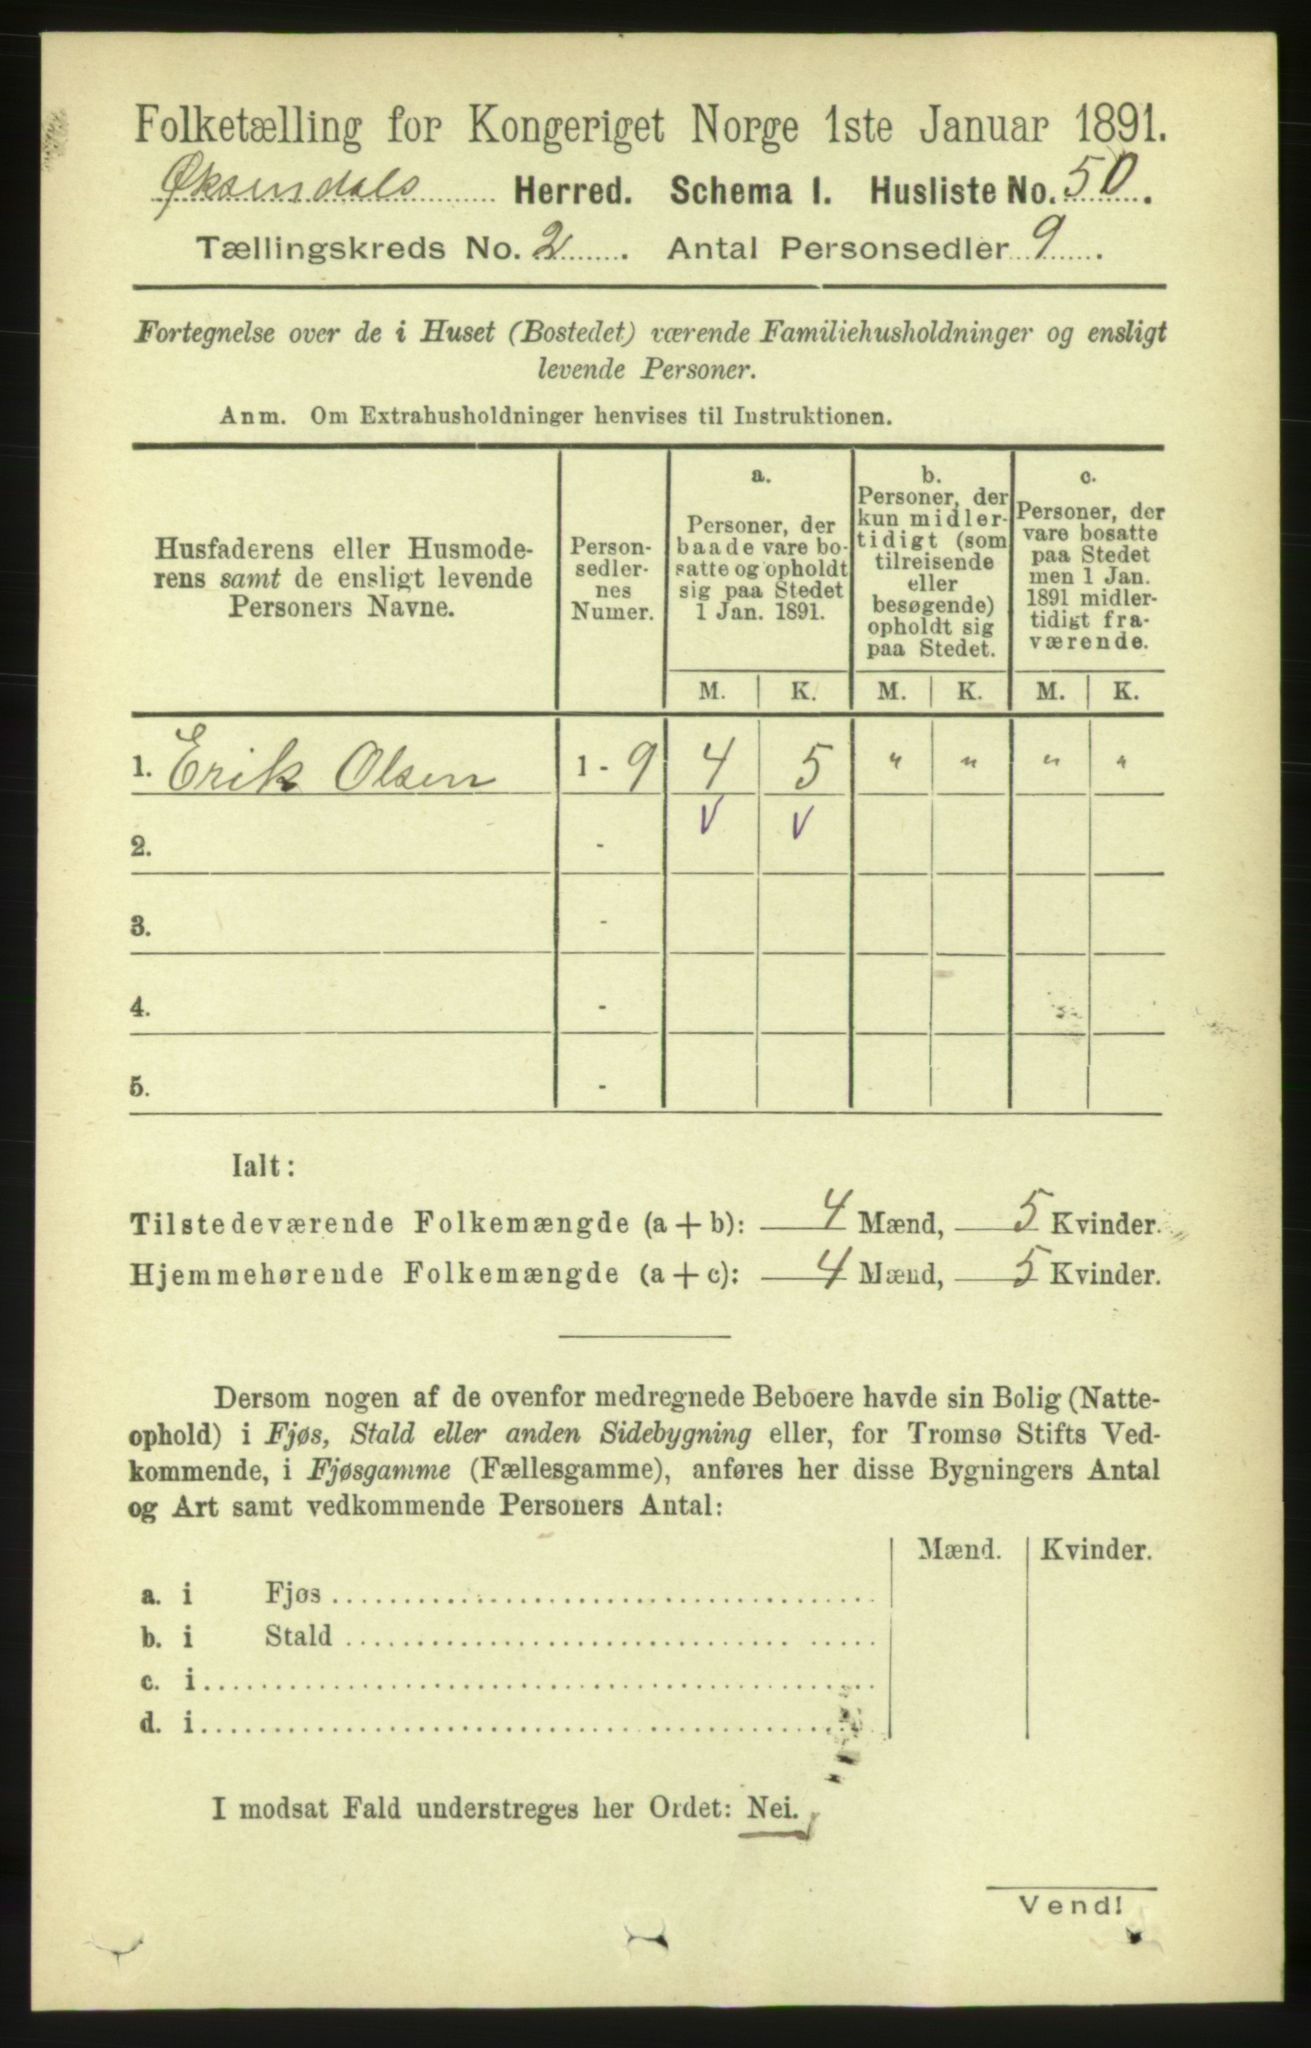 Folketælling for Kongeriget Norge 1ste Januar 1891.
Øksendals Herred. Schema I. Husliste No. 50.
Tællingskreds No. 2. Antal Personsedler 9.
Fortegnelse over de i Huset (Bostedet) værende Familiehusholdninger og ensligt
levende Personer.
Anm. Om Extrahusholdninger henvises til Instruktionen.
Husfaderens eller Husmode-
rens samt de ensligt levende
Personers Navne.
Person-
sedler-
nes
Numer.
a.
Personer, der
baade vare bo-
satte og opholdt
sig paa Stedet
1 Jan. 1891.
b.
Personer, der
kun midler-
tidigt (som
tilreisende
eller
besøgende)
opholdt sig
paa Stedet.
c.
Personer, der
vare bosatte
paa Stedet
men 1 Jan.
1891 midler-
tidigt fra-
værende.
M. K. M. K. M. K.
1. Erik Olsen 1 - 9 4 5 " " " "
2. - V V
3. -
4. -
5. -
Ialt:
Tilstedeværende Folkemængde (a + b): 4 Mænd, 5 Kvinder.
Hjemmehørende Folkemængde (a + c): 4 Mænd, 5 Kvinder.
Dersom nogen af de ovenfor medregnede Beboere havde sin Bolig (Natte-
ophold) i Fjøs, Stald eller anden Sidebygning eller, for Tromsø Stifts Ved-
kommende, i Fjøsgamme (Fællesgamme), anføres her disse Bygningers Antal
og Art samt vedkommende Personers Antal:
Mænd. Kvinder.
a. i Fjøs
b. i Stald
c. i
d. i
I modsat Fald understreges her Ordet: Nei.
Vend!